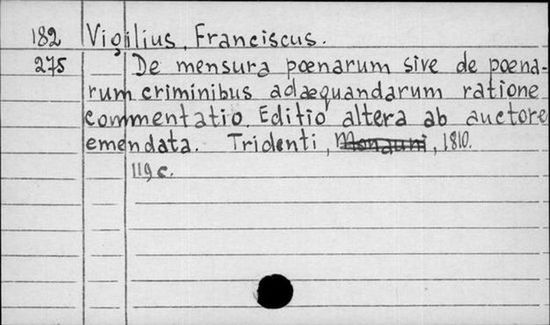 182 Vigilius, Franciscus.
275 De mensura poenarum sive de poena-
rum criminibus adaequandarum ratione
commentatio. Editio altera ab auctore
emendata. Tridenti, Monauni, 1810.
119 c.